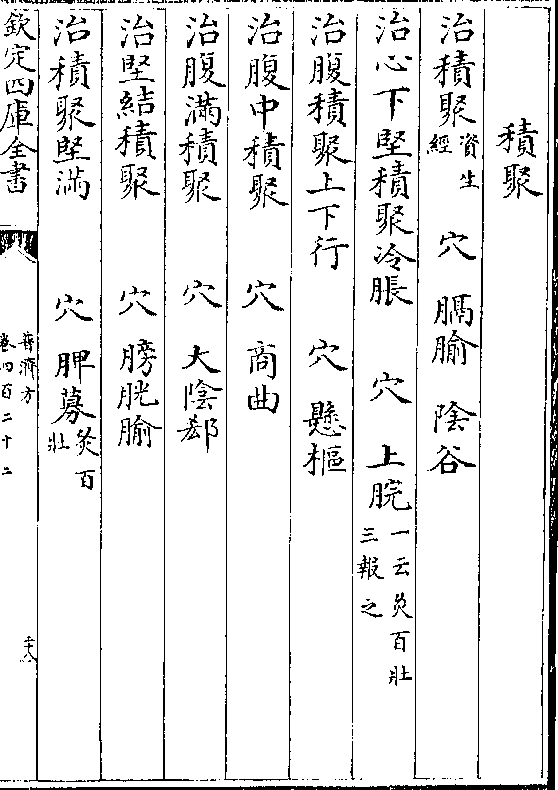 積聚
治積聚資生經 穴 膈腧 陰谷
治心下堅積聚冷脹 穴 上脘一云灸百壯三報之
治腹積聚上下行 穴 懸樞
治腹中積聚 穴 商曲
治腹滿積聚 穴 大陰郄
治堅結積聚 穴 膀胱腧
治積聚堅滿 穴 脾募灸百壯
欽定四庫全書 普濟方 卷四百二十二